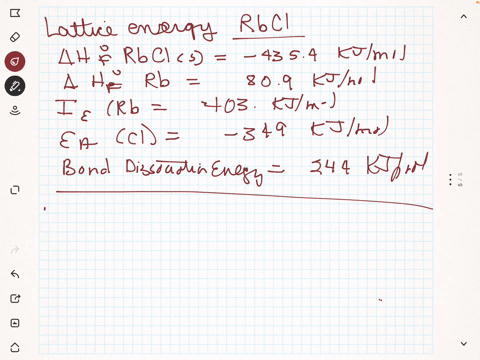 Lattice energy RbCl
ΔH°F RbCl(s) = -435.4 KJ/mol
ΔH°F Rb = 80.9 KJ/mol
IE (Rb = 403. KJ/mol
EA (Cl) = -349 KJ/mol
Bond Dissociation Energy = 244 KJ/mol